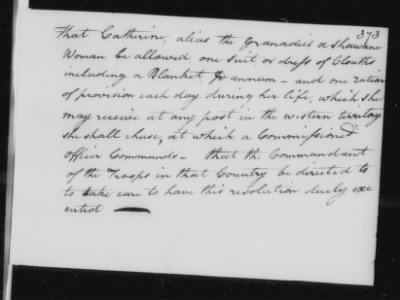 373
That Catherine, alias the Granadier a Shawnee
Woman be allowed one Suit or dress of Cloaths
including a Blanket, Pr annum - and one ration
of provision each day during her life, which she
may receive at any post in the western territory
she shall chuse, at which a Commissioned
Officer Commands - that the Commandant
of the Troops in that Country be directed to
to take care to have this resolution duely exe
cuted